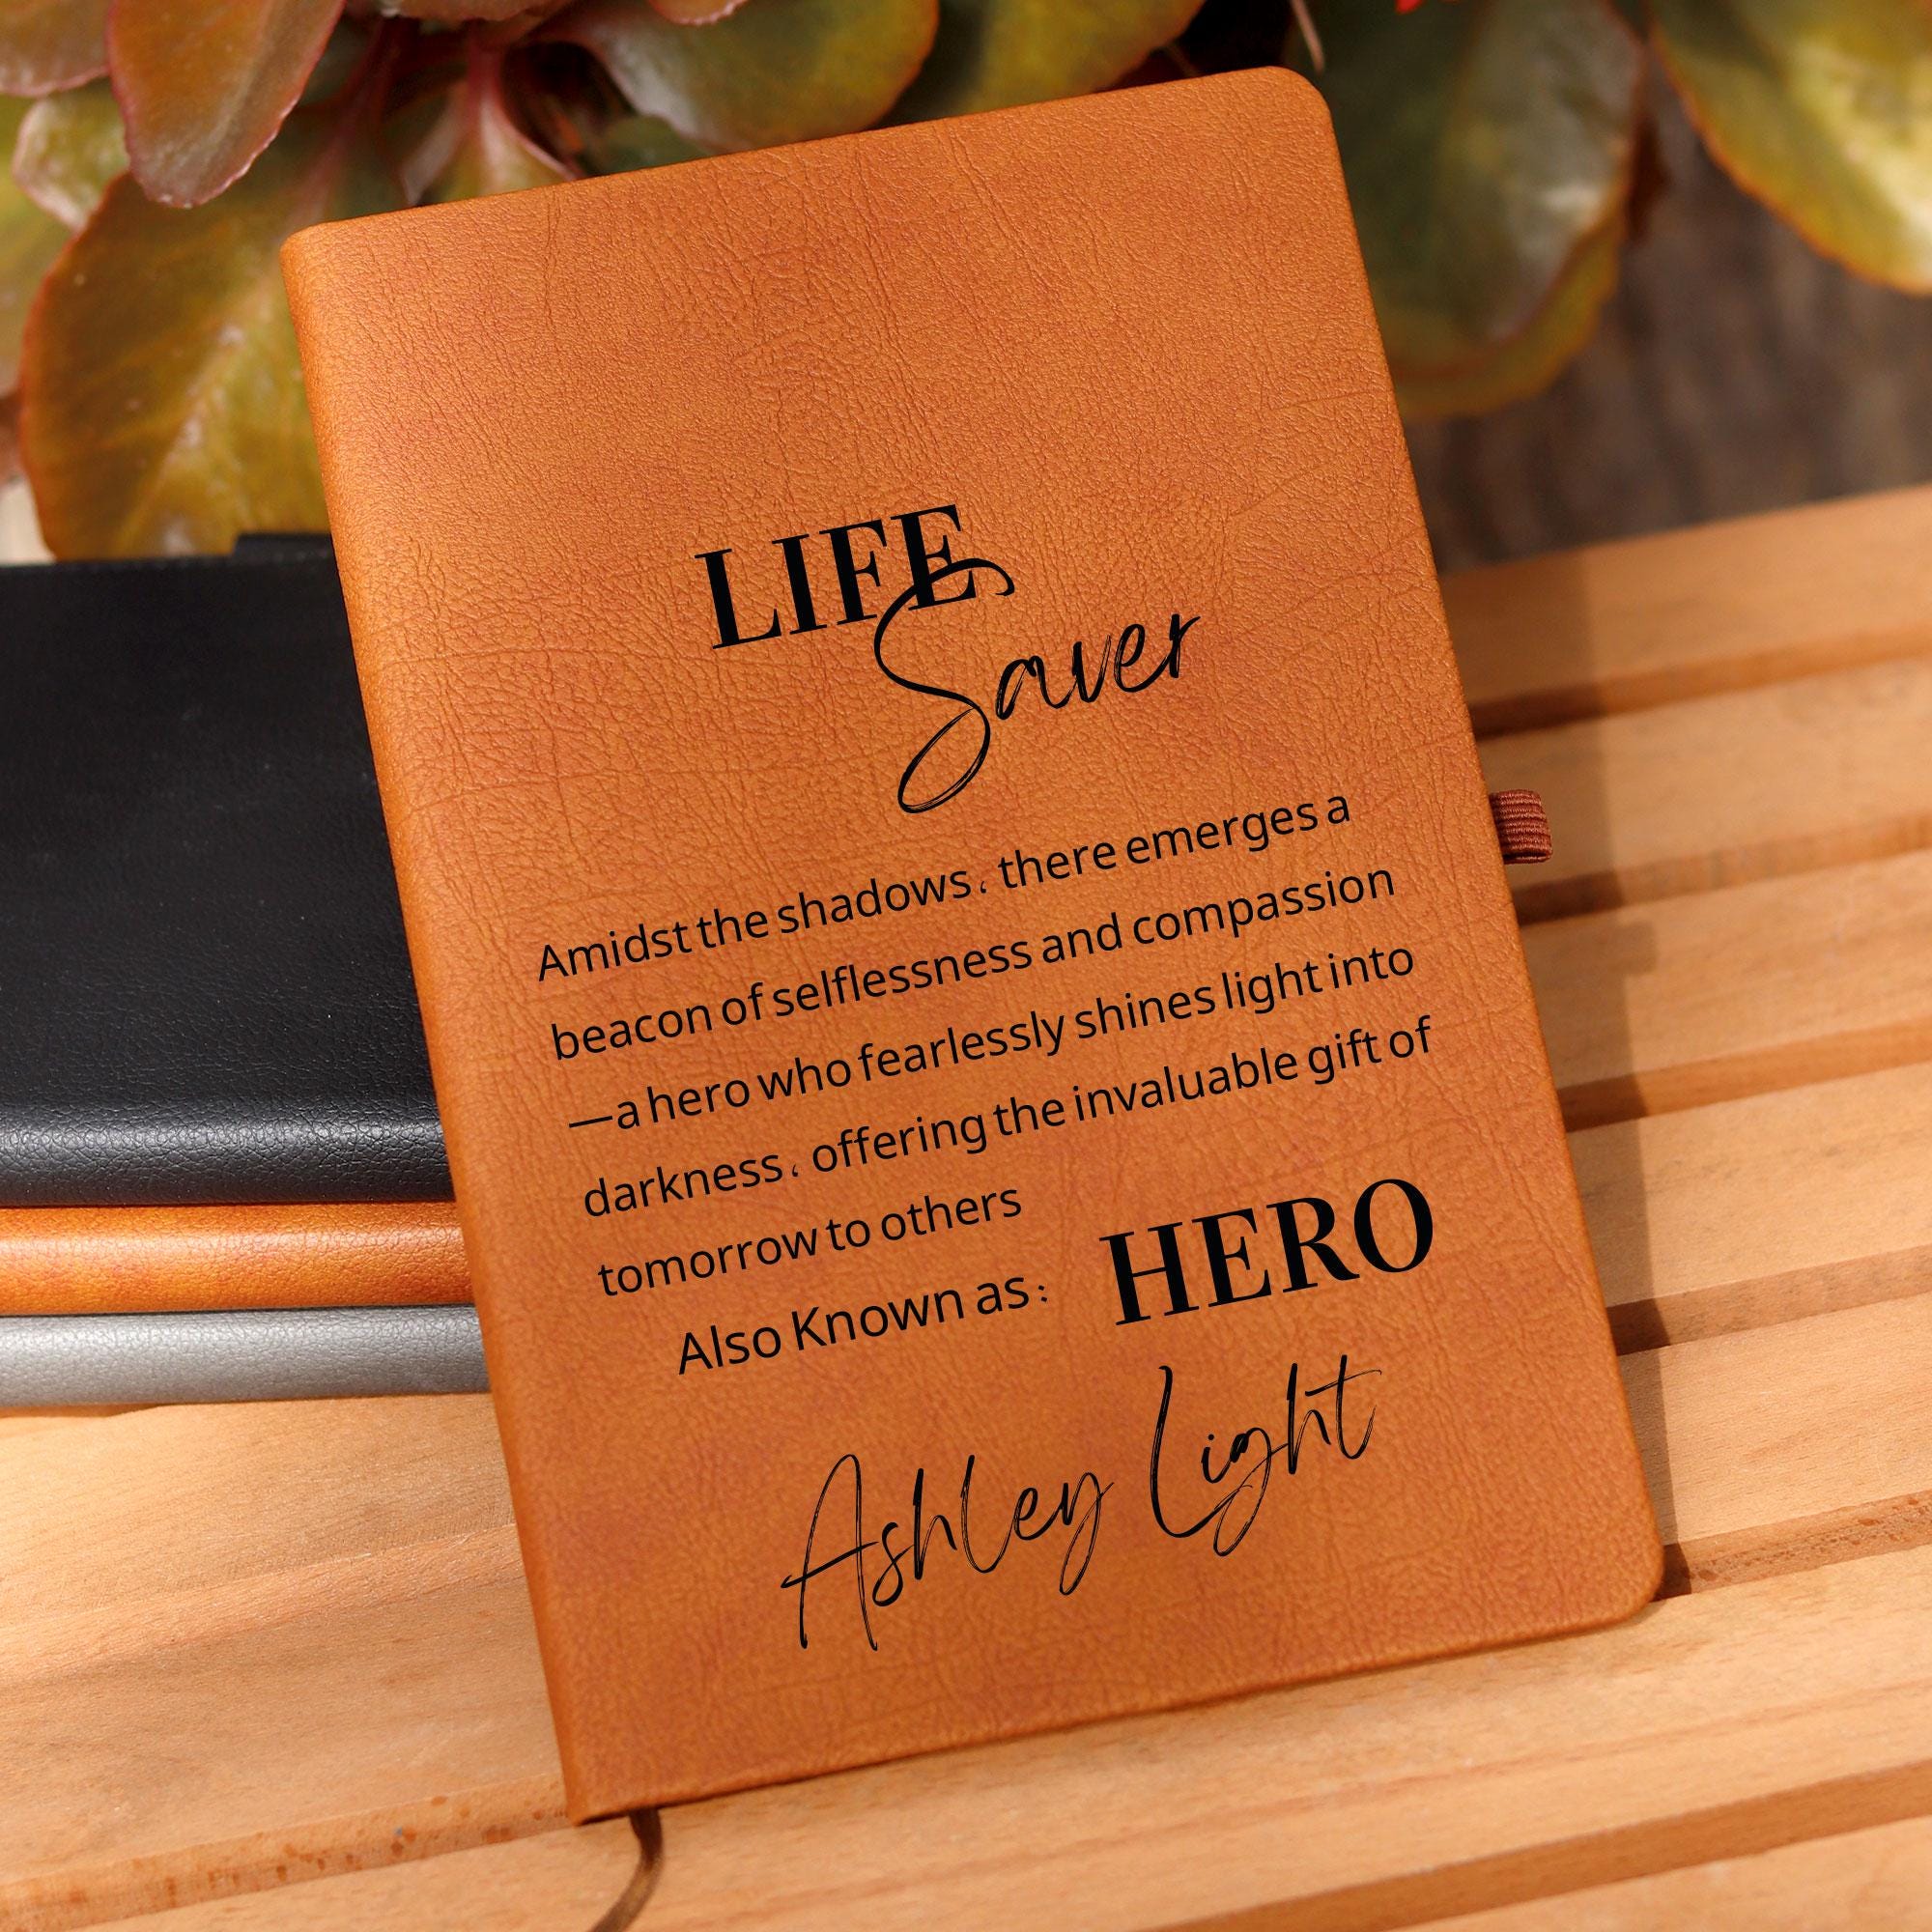 LIFE
Saver
Amidst the shadows، there emerges a
beacon of selflessness and compassion
—a hero who fearlessly shines light into
darkness، offering the invaluable gift of
tomorrow to others
Also Known as: HERO
Ashley Light